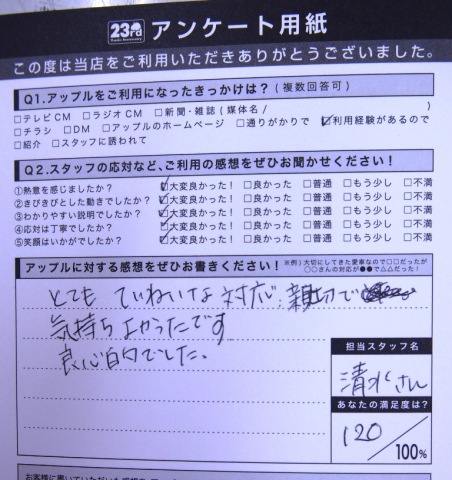 23rd アンケート用紙
この度は当店をご利用いただきありがとうございました。
Q1.アップルをご利用になったきっかけは？(複数回答可)
□テレビCM □ラジオCM □新聞・雑誌(媒体名/ )
□チラシ □DM □アップルのホームページ □通りがかりで ☑利用経験があるので
□紹介 □スタッフに誘われて
Q2.スタッフの応対など、ご利用の感想をぜひお聞かせください！
①熱意を感じましたか？ ☑大変良かった！ □良かった □普通 □もう少し □不満
②きびきびとした動きでしたか？ ☑大変良かった！ □良かった □普通 □もう少し □不満
③わかりやすい説明でしたか？ ☑大変良かった！ □良かった □普通 □もう少し □不満
④応対は丁寧でしたか？ ☑大変良かった！ □良かった □普通 □もう少し □不満
⑤笑顔はいかがでしたか？ ☑大変良かった！ □良かった □普通 □もう少し □不満
アップルに対する感想をぜひお書きください！ ※例)大切にしてきた愛車なので□□だったが
○○さんの対応が●●で△△だった！
とても ていねいな 対応 親切で
気持ち よかったです
良心的でした。
担当スタッフ名
清水さん
あなたの満足度は？
120/100%